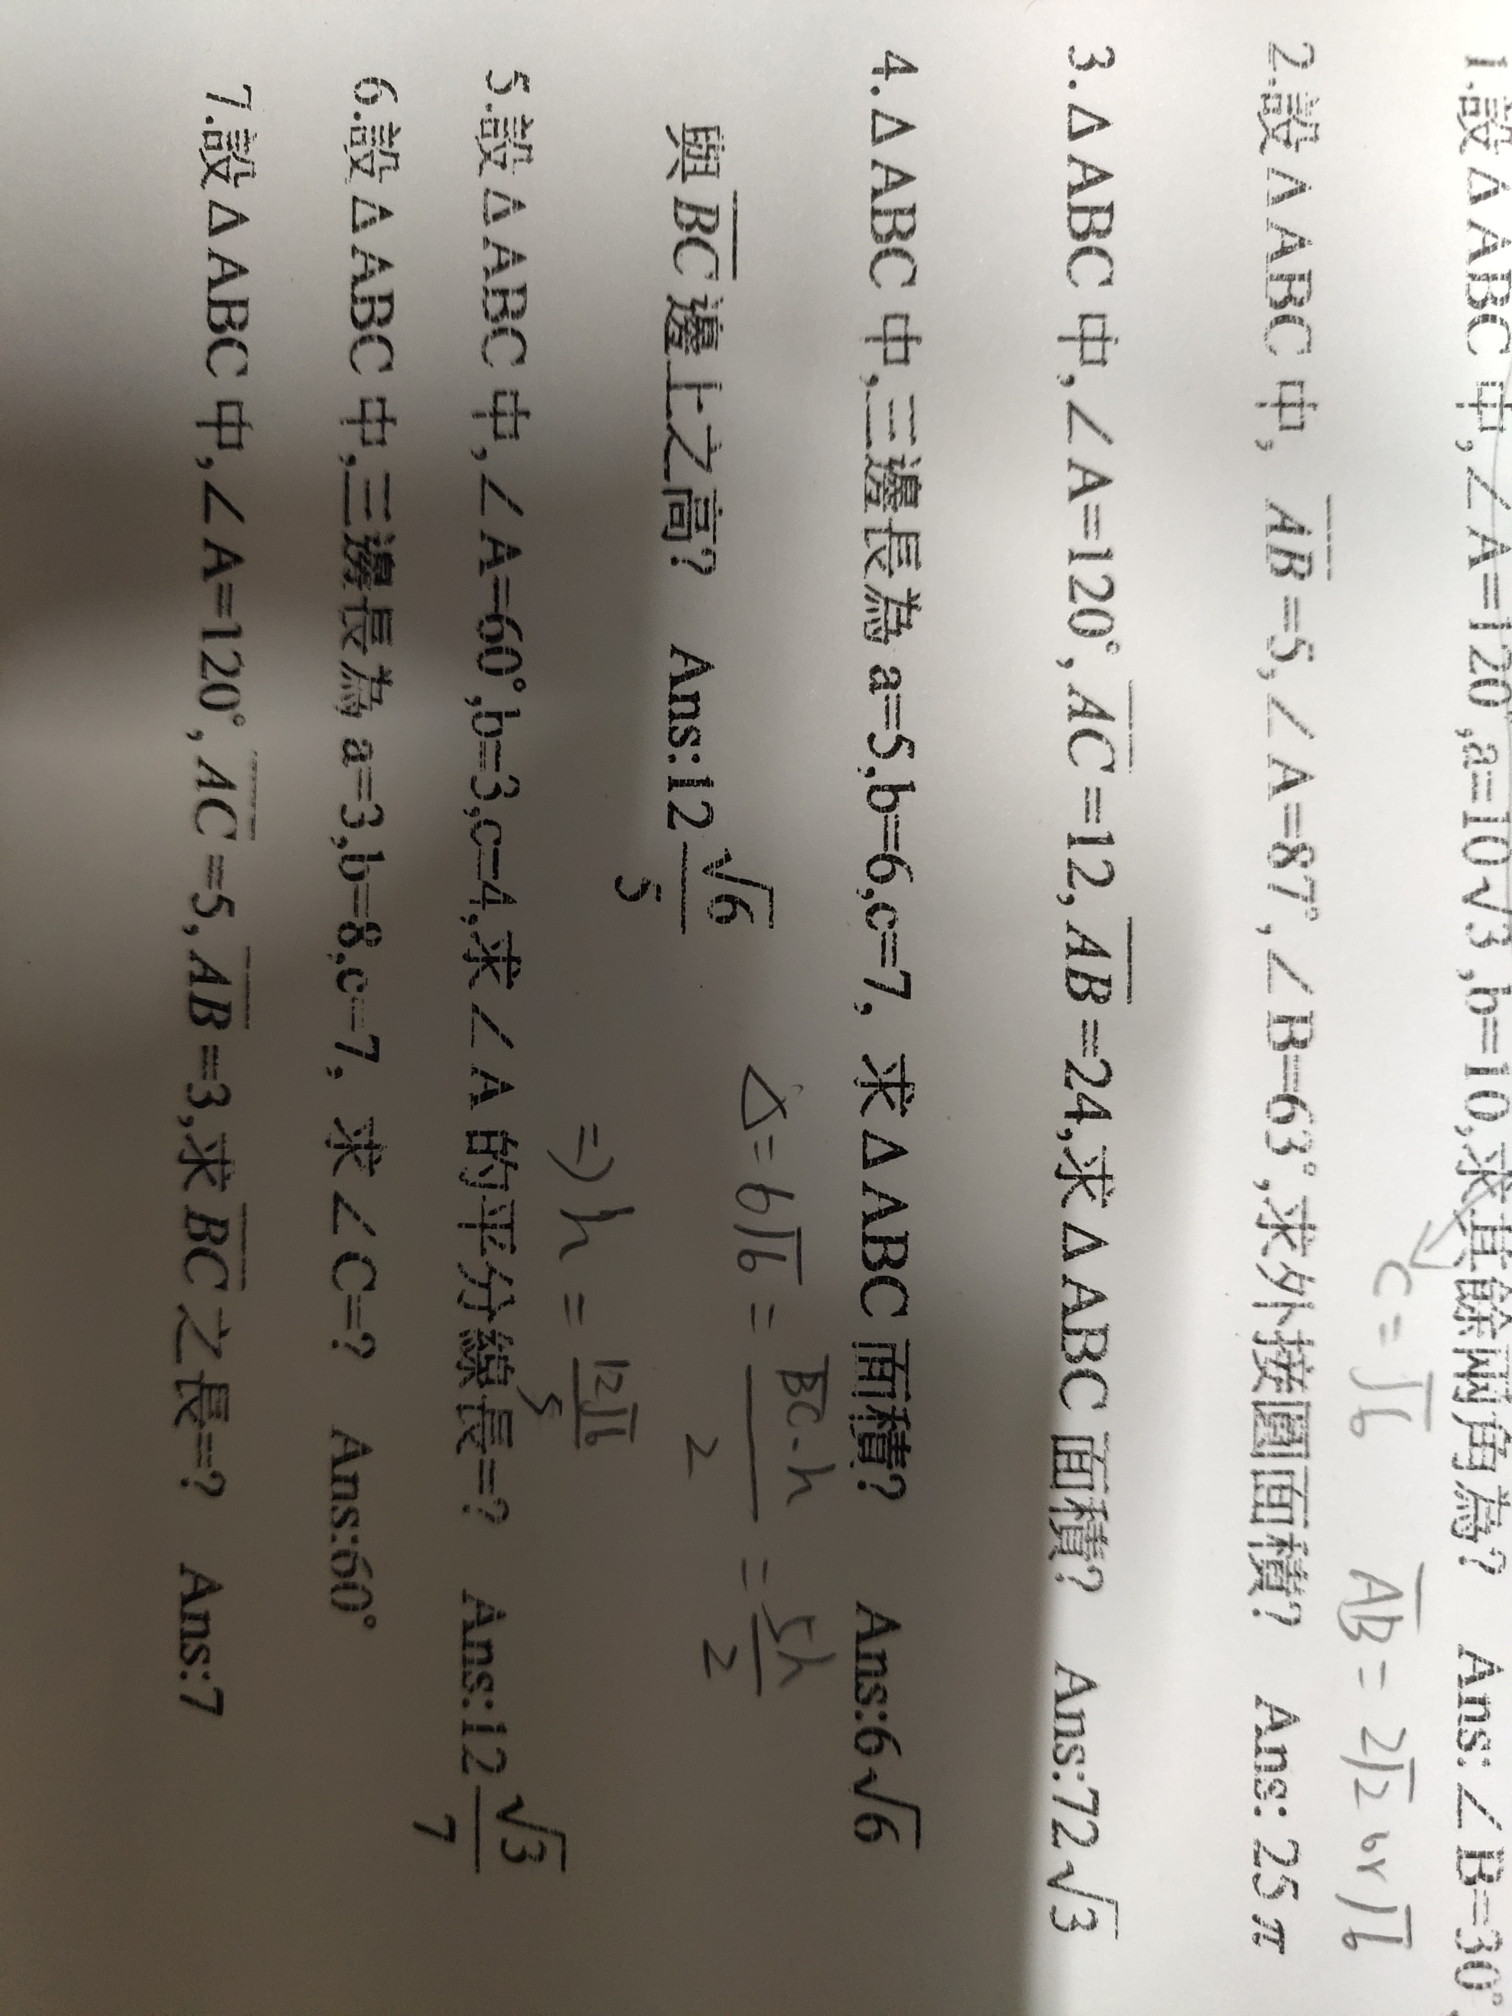 1.設△ABC中,∠A=120°,a=10√3,b=10,求其餘兩角為? Ans:∠B=30°,
C=√6 AB=2√2 or √6
2.設△ABC中, AB=5,∠A=87°,∠B=63°,求外接圓面積? Ans: 25π
3.△ABC中,∠A=120°,AC=12,AB=24,求△ABC面積? Ans:72√3
4.△ABC中,三邊長為a=5,b=6,c=7, 求△ABC面積? Ans:6√6
△=6√6=BC·h/2=5h/2
與BC邊上之高? Ans:12√6/5
=>h=12√6/5
5.設△ABC中,∠A=60°,b=3,c=4,求∠A的平分線長=? Ans:12√3/7
6.設△ABC中,三邊長為a=3,b=8,c=7, 求∠C=? Ans:60°
7.設△ABC中,∠A=120°,AC=5,AB=3,求BC之長=? Ans:7